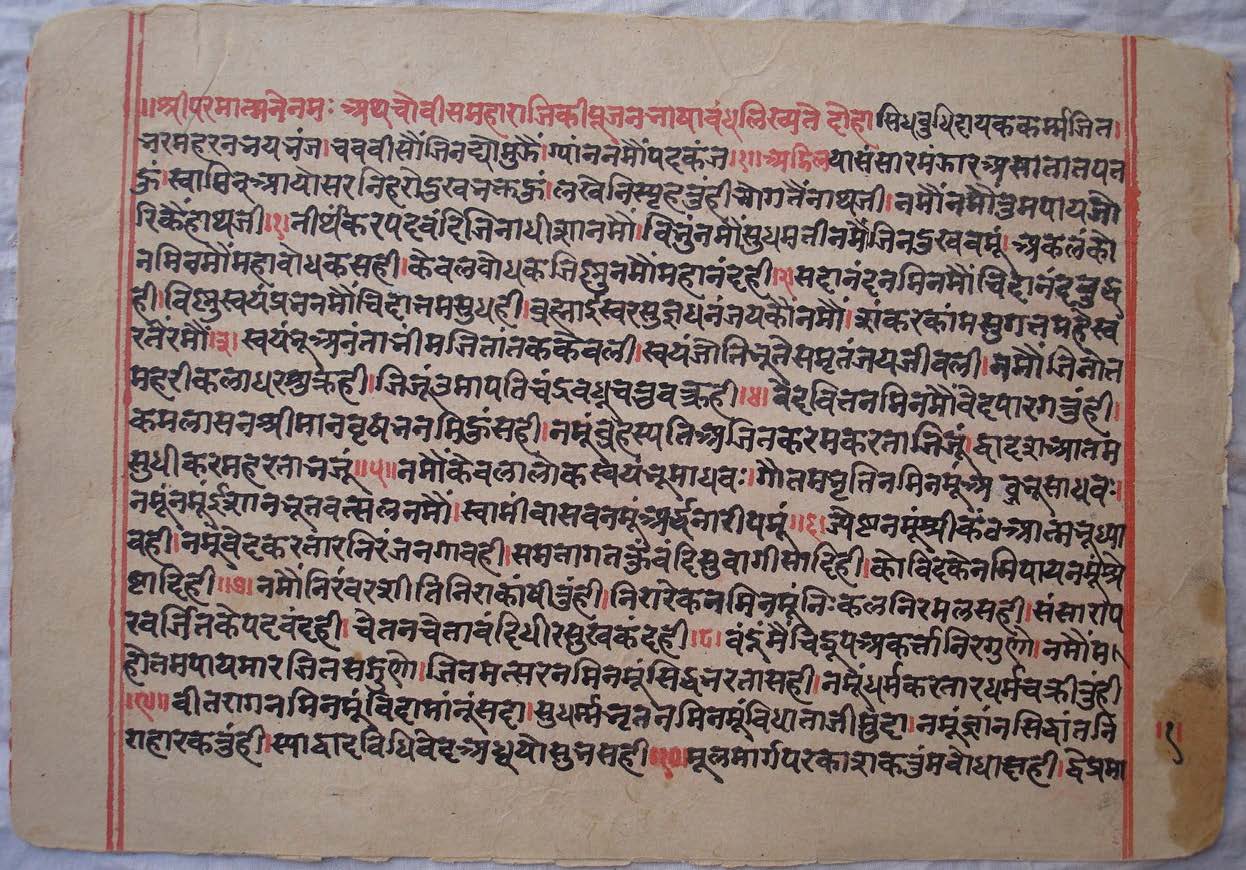 ॥श्रीपरमात्मनेनमः अथचौवीसमहाराजिकीपूजनभाषाबंधलिख्यते दोहा सिधबुधिदायककर्म्मजित।
भरमहरनभयभंज। चवबीसौंजिनद्यौमुझैं। ग्यांननमौंपदकंज।१। अडिल यासंसारमंझारअसातातपत
हूं। स्वामिन्आयोसरनिहरोदुखभक्तहूं। लखेनिस्पृहतुंहीजोगतैंनाथजी। नमौंनमौंतुमपायजो
रिकैंहाथजी।१। तीर्थंकरपदवंदिजिनाधीशानमौं। विभुंनमौंसुधमतीनमौंजिनदुखवमूं। अकलंको
नमिनमौंमहाबोधकसही। केवलबोधकजिष्णुनमौंमहानंदही।२। सदानंदनमिनमौंचिदानंदबुद्ध
ही। विष्णुस्वयंप्रभनमौंचिदातमसुधही। ब्रह्माईस्वरसुबुधधनंजयकौनमौं। शंकरकांमसुगतमहेस्व
रतेरमौं।३। स्वयंभूअनंतानीमजितांतककेवली। स्वयंजोतिभूतेसमृतंजयजीवली। नमौंजिनोत
महरीकलाधरशुक्रही। जिभूंउमापतिचंडबधूचतुवक्रही।४। वेदवितनमिनमौंवेदपारगतुंही।
कमलासनश्रीमानवृषभनमिहूंसही। नमूंबृहस्पतिअजिनकरमकरताजिभूं। द्वादशआतम
सुधीकरमहरताभजूं॥५॥ नमौंकेवलालोकस्वयंभूमाधवः। गौतमप्रतिनमिनमूंअ साधुवः।
नमूंनमूंईशानभूतवत्सलनमौं। स्वामीवासवनमूंअर्द्धनारीपमूं॥६। ज्येष्टनमूंश्रीकंवआत्मभूध्या
वही। नमूंवेदकरतारनिरंजनगावही। समतागतहूंवंदिसुवागीसादिही। कोविदकेनमिपायनमूंश्र
ष्टादिही॥७। नमौंनिरंवरशीतिनिराकांषीतुंही। निरारेकनमिनमूंनिःकलनिरमलसही। संसारोप
रवर्जितकेपदवंदही। चेतनचेतावंदिधीरसुखकंदही।८। वंदूंमैंचिद्रूपअकर्त्तानिरगुणो। नमौंम
होतमपायमारजितसतगुणो। जितमत्सरनमिनमूंसिद्धभरतासही। नमूंधर्मकरतारधर्मचक्रीतुंही
।९॥ वीतरागनमिनमूंविदामांनूंसदा। सुधर्म्मभृतनमिनमूंविधाताजीमुदा। नमूंज्ञांनसिद्धांतनि
राहारकतुंही। स्याद्वादविधिवेदअध्वयोसुतसही॥१०। मूलमार्गपरकाशकतुंमबोधासही। द्वैप्रमा
।१।